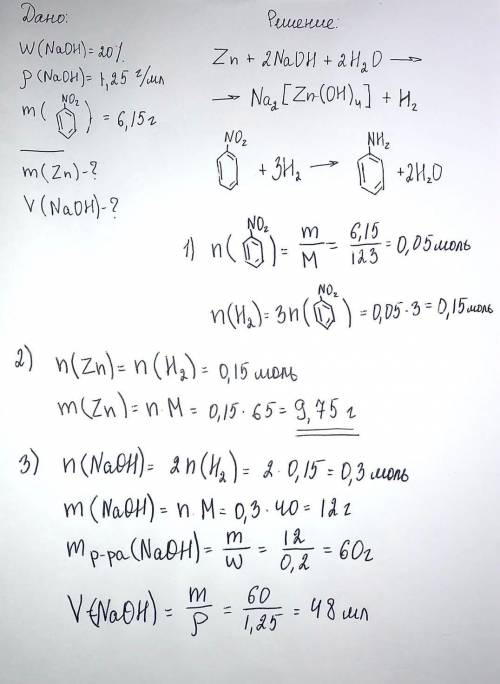 Дано:
W(NaOH)=20%
ρ(NaOH)=1,25 г/мл
m(NO₂) = 6,15г
m(Zn)-?
V(NaOH)-?
Решение:
Zn + 2NaOH + 2H₂O →
→ Na₂[Zn(OH)₄] + H₂
NO₂ + 3H₂ → NH₂ + 2H₂O
1) n(NO₂) = m/M = 6,15/123 = 0,05 моль
n(H₂) = 3n(NO₂) = 0,05·3 = 0,15 моль
2) n(Zn) = n(H₂) = 0,15 моль
m(Zn) = n·M = 0,15·65 = 9,75 г
3) n(NaOH) = 2n(H₂) = 2·0,15 = 0,3 моль
m(NaOH) = n·M = 0,3·40 = 12г
m р-ра(NaOH) = m/w = 12/0,2 = 60г
V(NaOH) = m/ρ = 60/1,25 = 48 мл